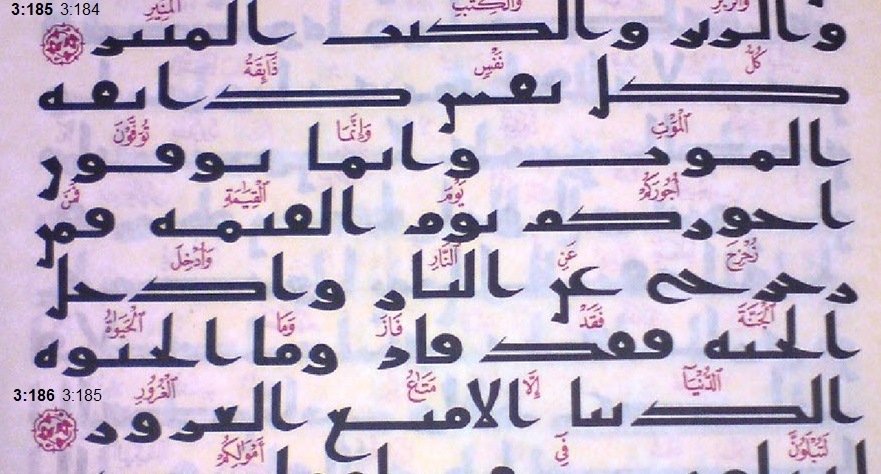 3:185 3:184
وَٱلزُّبُرِ وَٱلْكِتَٰبِ ٱلْمُنِيرِ
والزبر والكتب المنير
كُلُّ نَفْسٍ ذَآئِقَةُ
كل نفس ذايقه
ٱلْمَوْتِ وَإِنَّمَا تُوَفَّوْنَ
الموت وانما توفون
أُجُورَكُمْ يَوْمَ ٱلْقِيَٰمَةِ فَمَن
اجوركم يوم القيمه فمن
زُحْزِحَ عَنِ ٱلنَّارِ وَأُدْخِلَ
زحزح عن النار وادخل
ٱلْجَنَّةَ فَقَدْ فَازَ وَمَا ٱلْحَيَوٰةُ
الجنه فقد فاز وما الحيوه
3:186 3:185
ٱلدُّنْيَآ إِلَّا مَتَٰعُ ٱلْغُرُورِ
الدنيا الا متع الغرور
لَتُبْلَوُنَّ فِىٓ أَمْوَٰلِكُمْ